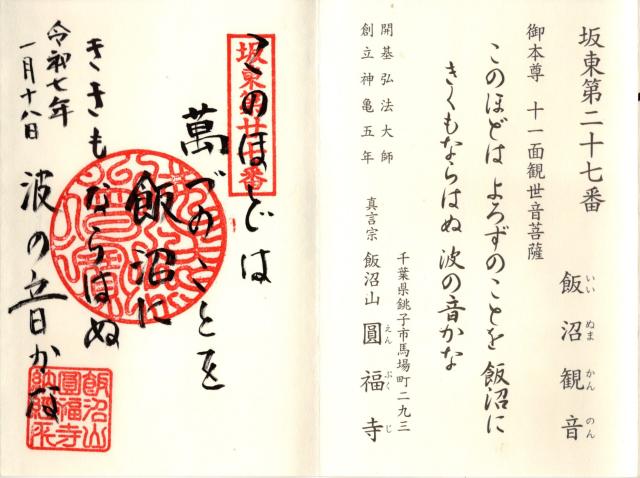 坂東第二十七番
飯沼観音
いいぬまかんのん
御本尊 十一面観世音菩薩
このほどは よろずのことを 飯沼に
きくもならはぬ 波の音かな
開基弘法大師
創立神亀五年
千葉県銚子市馬場町二九三
真言宗 飯沼山 圓福寺
えんぷくじ
坂東第廿七番
このほどは
萬づのことを
飯沼に
きくもならはぬ
波の音かな
令和七年
一月十八日
飯沼山
圓福寺